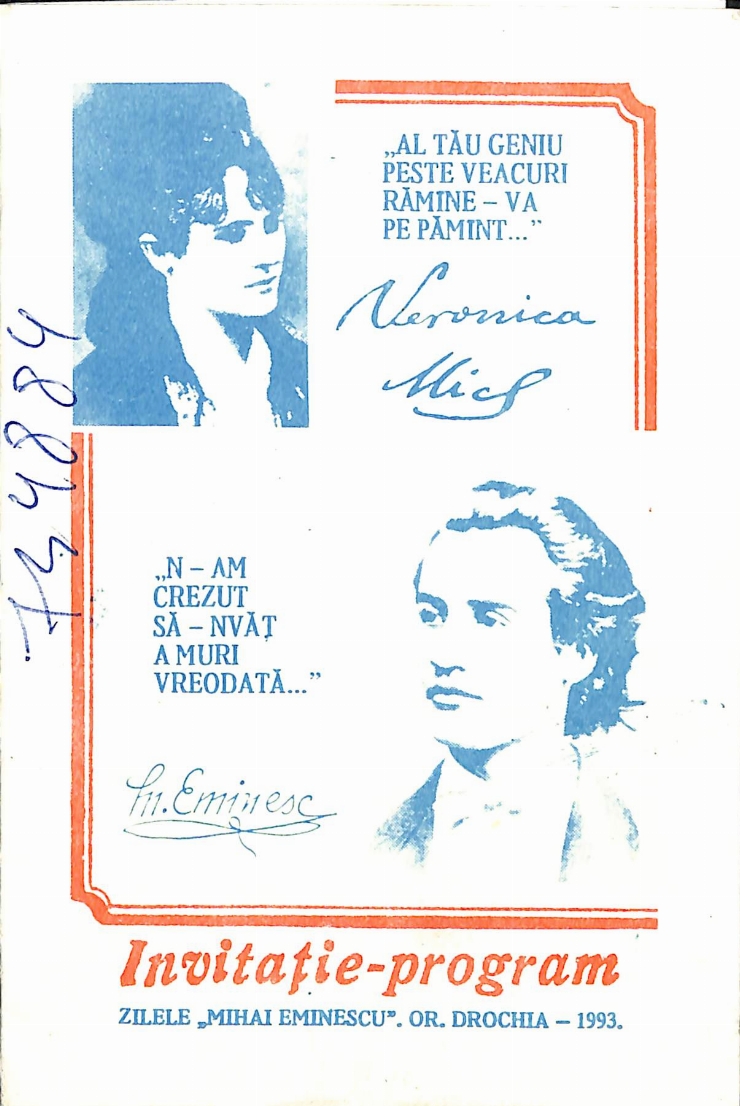 „AL TĂU GENIU
PESTE VEACURI
RĂMINE – VA
PE PĂMINT...”
Veronica
Micl
„N – AM
CREZUT
SĂ – NVĂŢ
A MURI
VREODATĂ...”
M. Eminesc
Invitaţie-program
ZILELE „MIHAI EMINESCU”. OR. DROCHIA – 1993.